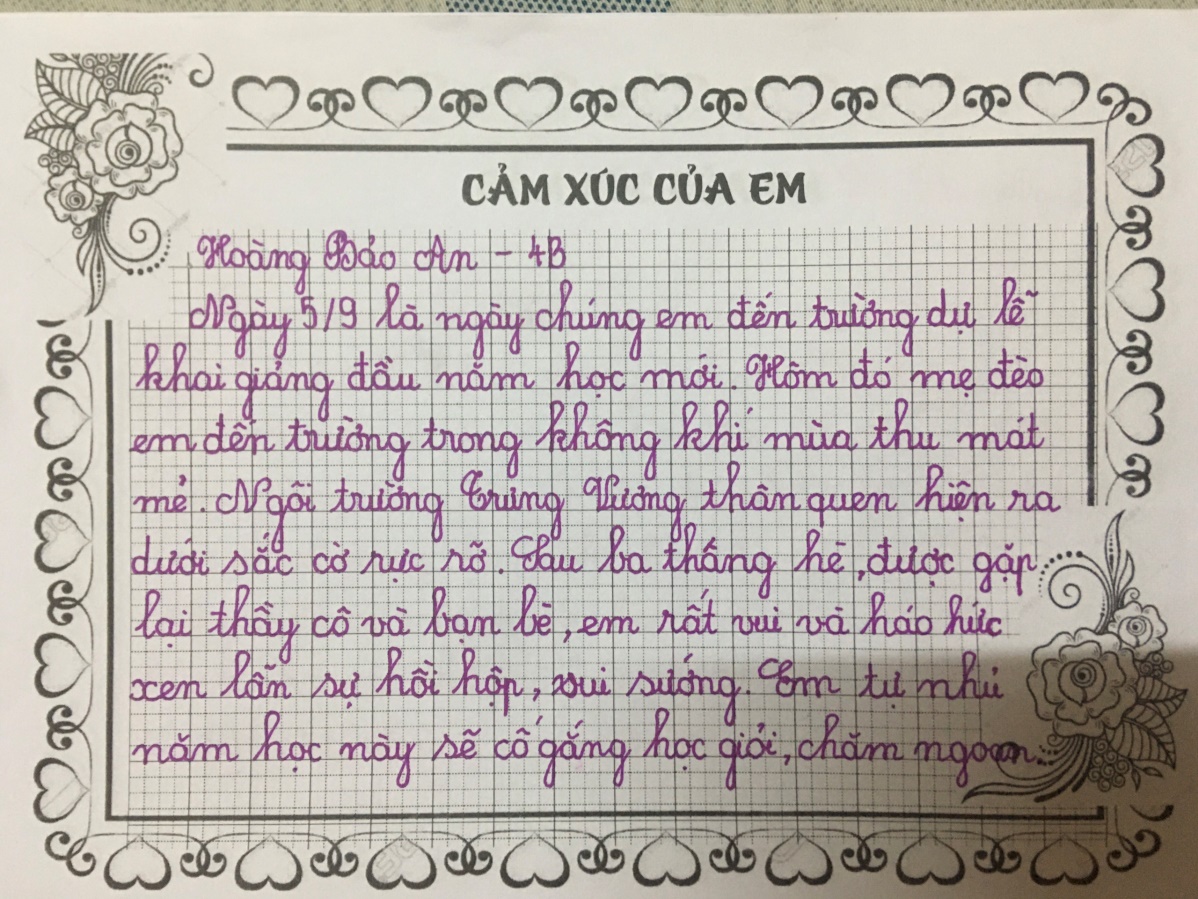 CẢM XÚC CỦA EM
Hoàng Bảo An - 4B
Ngày 5/9 là ngày chúng em đến trường dự lễ
khai giảng đầu năm học mới. Hôm đó mẹ đèo
em đến trường trong không khí mùa thu mát
mẻ. Ngôi trường Trưng Vương thân quen hiện ra
dưới sắc cờ rực rỡ. Sau ba tháng hè, được gặp
lại thầy cô và bạn bè, em rất vui và háo hức
xen lẫn sự hồi hộp, vui sướng. Em tự nhủ
năm học này sẽ cố gắng học giỏi, chăm ngoan.